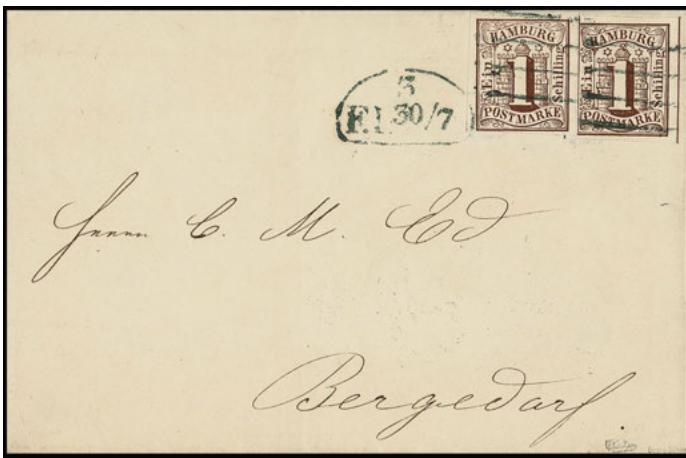 HAMBURG
Ein
1
Schilling
POSTMARKE
HAMBURG
Ein
1
Schilling
POSTMARKE
3
30/7
Herrn C. M. Ed
Bergedorf.